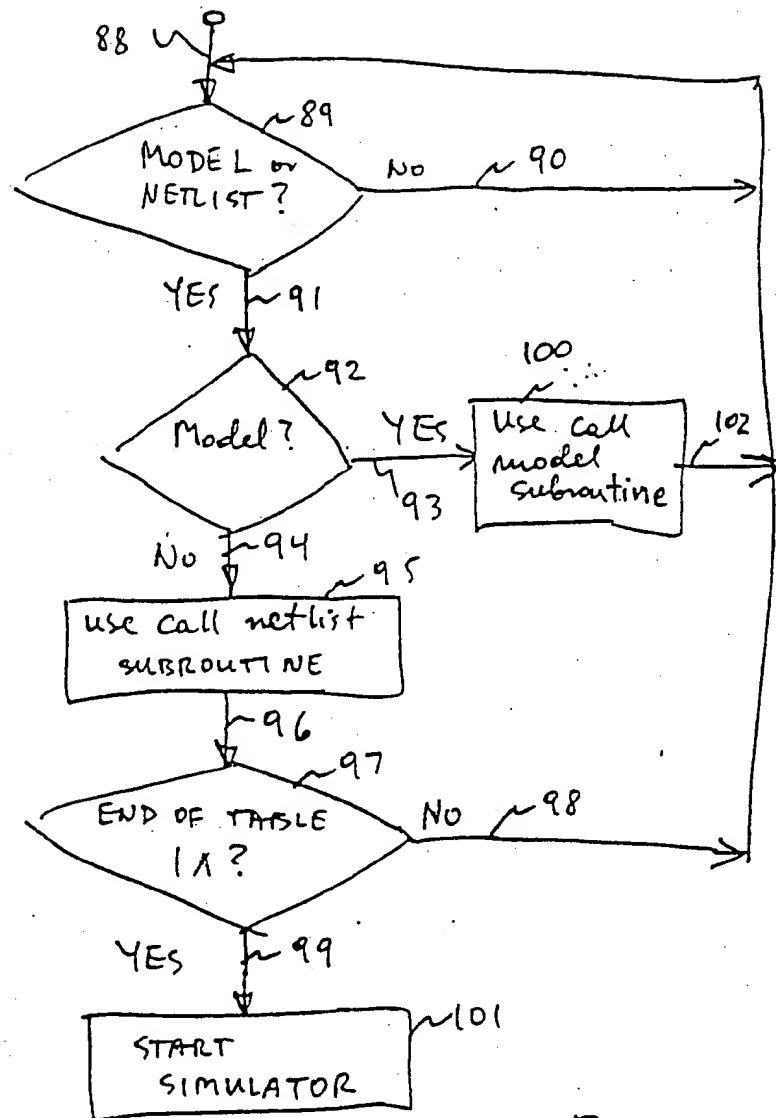 88
89
MODEL or
NETLIST?
NO
90
YES
91
92
Model?
YES
93
100
Use call
model
subroutine
102
NO
94
95
use call netlist
SUBROUTINE
96
97
END OF TABLE
1A?
NO
98
YES
99
101
START
SIMULATOR